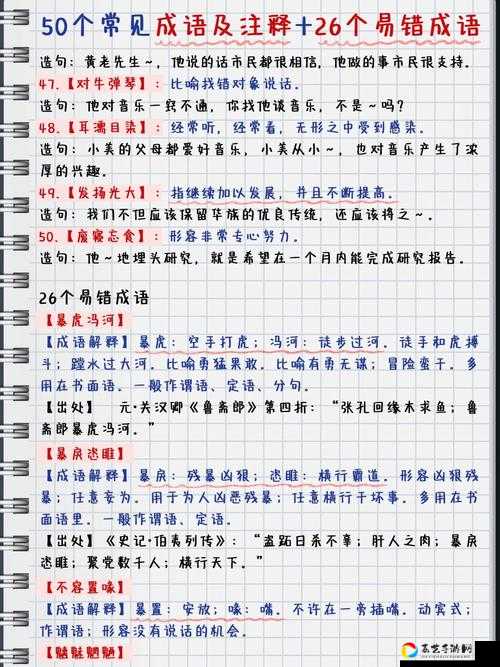 50个常见成语及注释+26个易错成语
造句：黄老先生~，他说的话市民都很相信，他做的事市民很支持。
47.【对牛弹琴】：比喻找错对象说话。
造句：他对音乐一窍不通，你找他谈音乐，不是~吗？
48.【耳濡目染】：经常听，经常看，无形之中受到感染。
造句：小美的父母都爱好音乐，小美从小~，也对音乐产生了浓
厚的兴趣。
49.【发扬光大】：指继续加以发展，并且不断提高。
造句：我们不但应该保留华族的优良传统，还应该将之~。
50.【废寝忘食】：形容非常专心努力。
造句：他~地埋头研究，就是希望在一个月内能完成研究报告。
26个易错成语
【暴虎冯河】
【成语解释】暴虎：空手打虎；冯河：徒步过河。徒手和虎搏
斗；蹚水过大河。比喻勇猛果敢。比喻有勇无谋；冒险蛮干。多
用在书面语。一般作谓语、定语、分句。
【出处】 元·关汉卿《鲁斋郎》第四折：“张孔回缘木求鱼；鲁
斋郎暴虎冯河。”
【暴戾恣睢】
【成语解释】暴戾：残暴凶狠；恣睢：横行霸道。形容凶狠残
暴；任意妄为。用于为人凶恶残暴；任意横行干坏事。多用在书
面语里。一般作谓语、定语。
【出处】《史记·伯夷列传》：“盗跖日杀不辜；肝人之肉；暴戾
恣睢；聚党数千人；横行天下。”
【不容置喙】
【成语解释】暴置：安放；喙：嘴。不许在一旁插嘴。动宾式；
作谓语；形容没有说话的机会。
【魑魅魍魉】